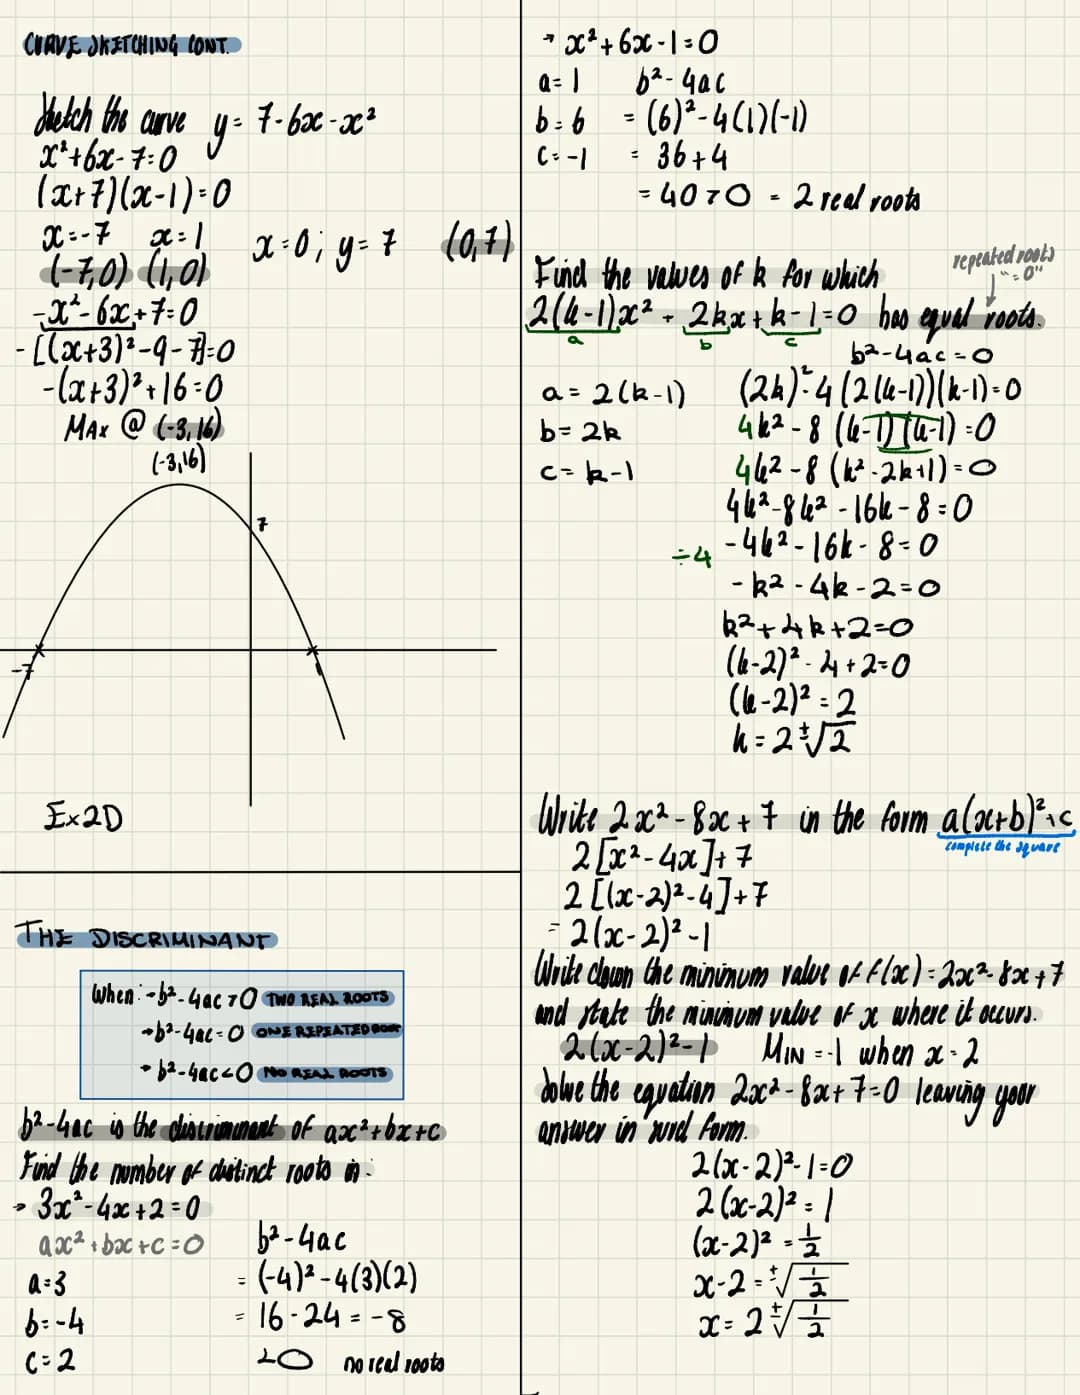 CURVE SKETCHING CONT.
Sketch the curve y = 7-6x-x²
x²+6x-7=0
(x+7)(x-1)=0
x=-7 x=1 x=0; y=7 (0,7)
(-7,0) (1,0)
-x²-6x+7=0
-[(x+3)²-9-7]=0
-(x+3)²+16=0
MAX @ (-3,16)
(-3,16)
7
-7
1
Ex2D
THE DISCRIMINANT
When: -b²-4ac>0 TWO REAL ROOTS
→b²-4ac=0 ONE REPEATED ROOT
• b²-4ac<0 NO REAL ROOTS
b²-4ac is the discriminant of ax²+bx+c
Find the number of distinct roots in:
→ 3x²-4x+2=0
ax²+bx+c=0 b²-4ac
a=3 = (-4)²-4(3)(2)
b=-4 = 16-24 = -8
c=2 <0 no real roots
→ x²+6x-1=0
a=1 b²-4ac
b=6 = (6)²-4(1)(-1)
c=-1 = 36+4
= 40>0 = 2 real roots
repeated roots
"=0"
Find the values of k for which
2(k-1)x² + 2kx+k-1=0 has equal roots.
a b c
b²-4ac=0
a=2(k-1) (2k)²-4(2(k-1))(k-1)=0
b=2k 4k²-8(k-1)(k-1)=0
c=k-1 4k²-8(k²-2k+1)=0
4k²-8k²-16k-8=0
÷4 -4k²-16k-8=0
-k²-4k-2=0
k²+4k+2=0
(k-2)²-4+2=0
(k-2)²=2
k=2±√2
Write 2x²-8x+7 in the form a(x+b)²+c
complete the square
2[x²-4x]+7
2[(x-2)²-4]+7
= 2(x-2)²-1
Write down the minimum value of f(x)=2x²-8x+7
and state the minimum value of x where it occurs.
2(x-2)²-1 MIN = -1 when x=2
Solve the equation 2x²-8x+7=0 leaving your
answer in surd form.
2(x-2)²-1=0
2(x-2)²=1
(x-2)²=1/2
x-2=±√1/2
x=2±√1/2